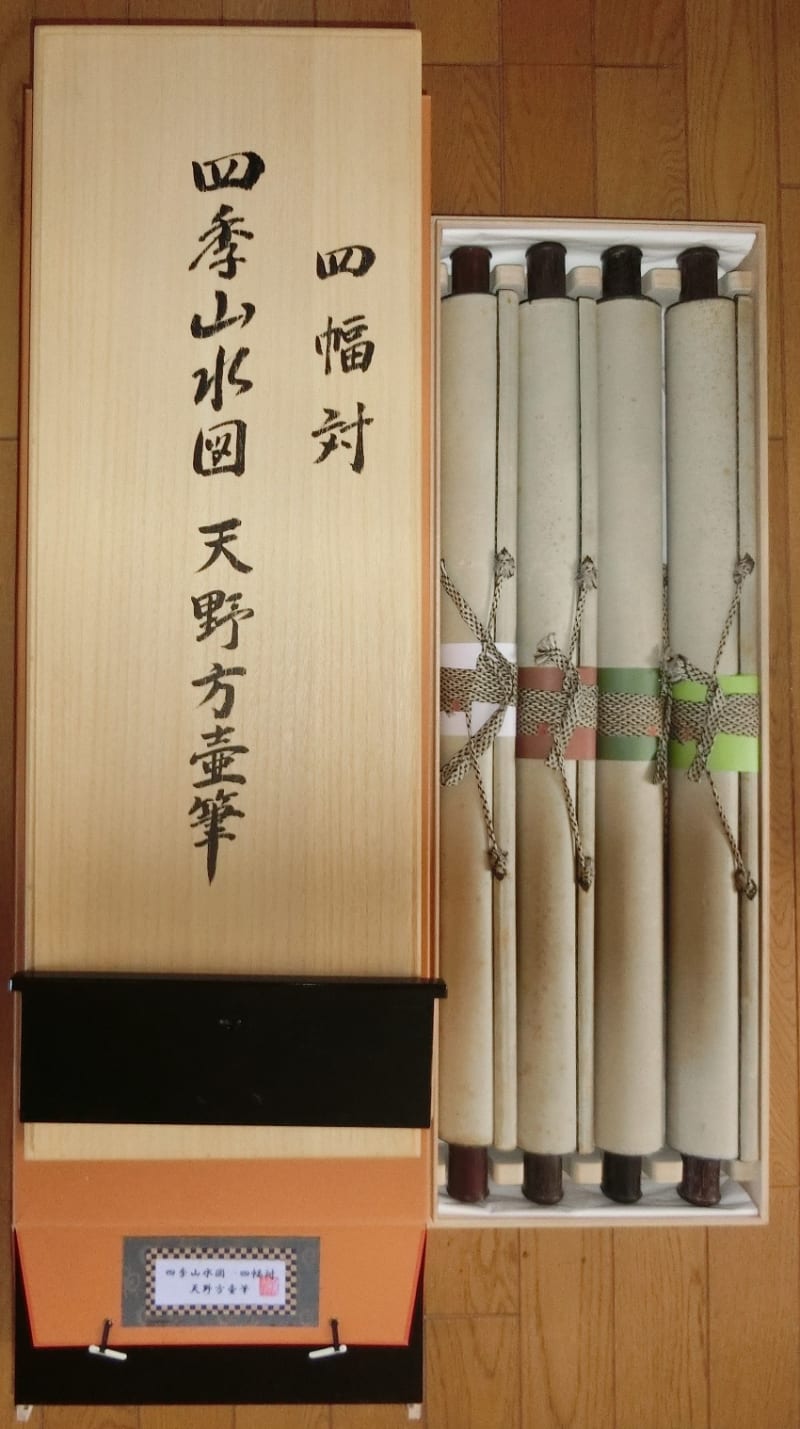 四幅対
四季山水図 天野方壷筆
四季山水図 四幅対
天野方壷筆